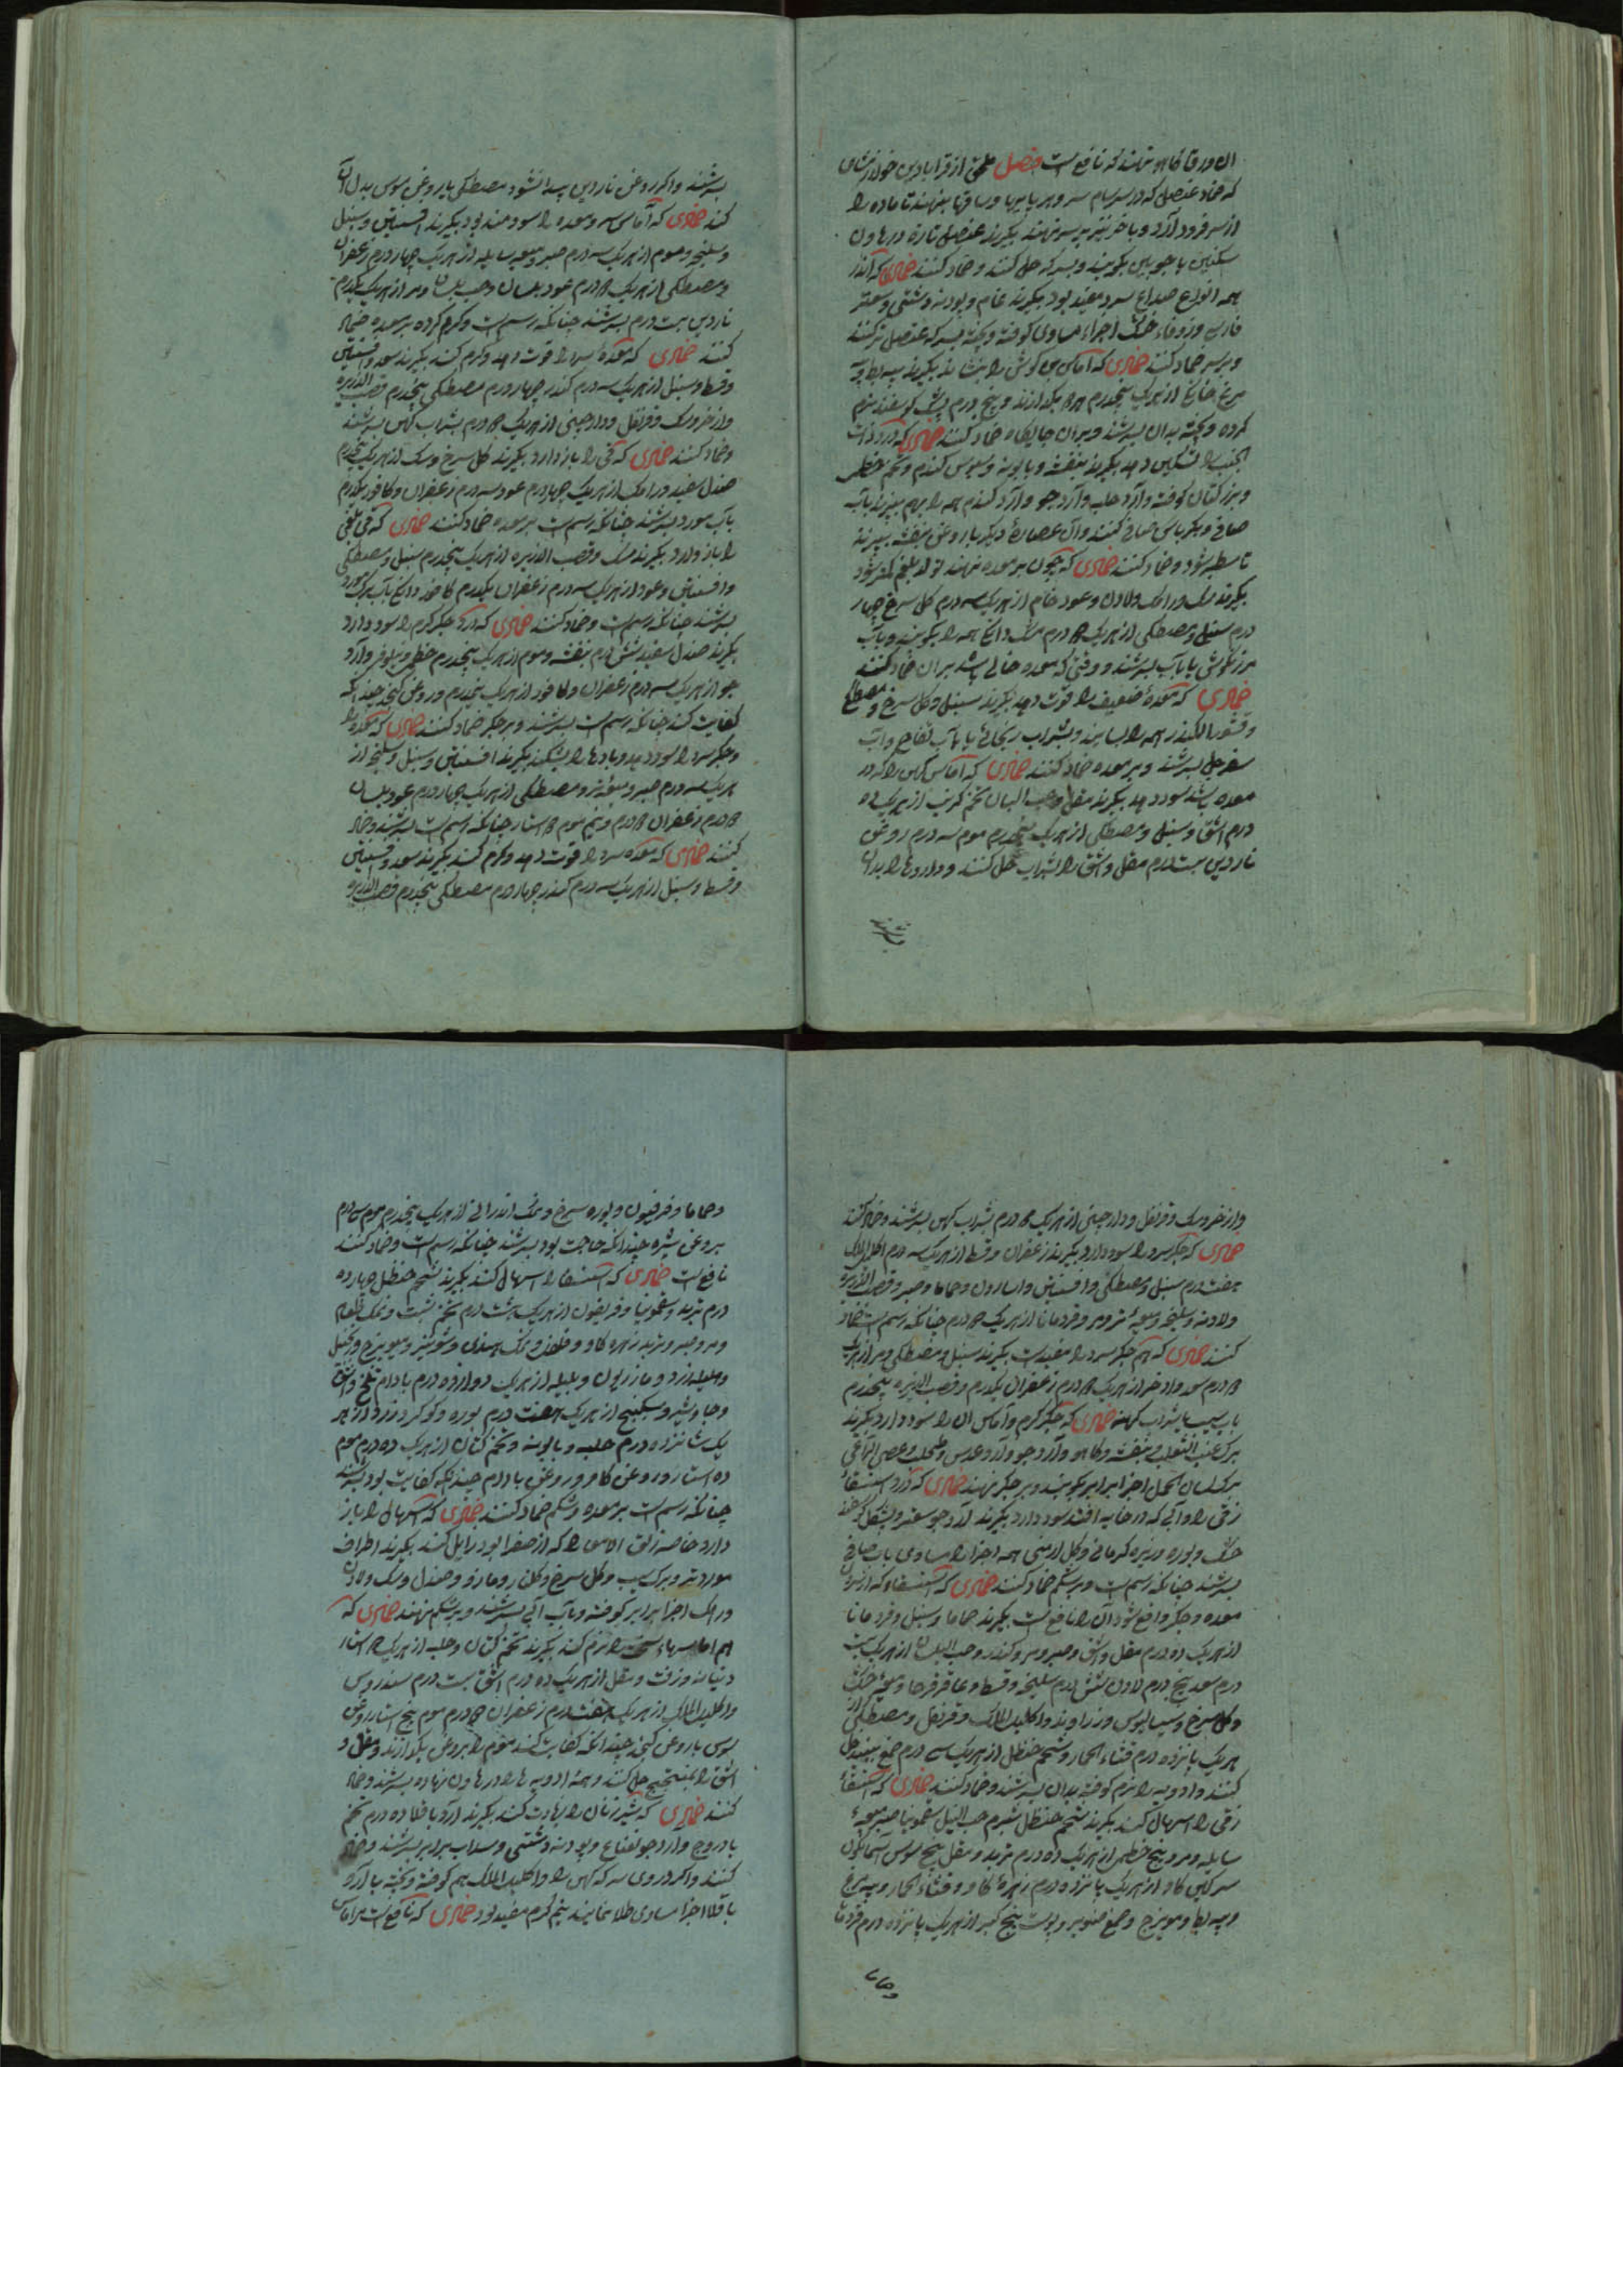 که ضماد عنصل که در سرسام سرد بر پایها و ساقها بنهند تا ماده را
از سر فرود آرد و باخر نیز بر سر نهند بگیرند عنصل تازه در هاون
سنگین یا چوبین بکوبند و بسرکه حل کنند و ضماد کنند ضمادی که اندر
همه انواع صداع سرد مفید بود بگیرند نمام و پودنه دشتی و سعتر
فارسی و زوفاء خشک اجزاء مساوی کوفته و بیخته بسرکه عنصل تر کنند
و بر سر ضماد کنند ضمادی که آماس بن کوش را بنشاند بگیرند پیه بط و پیه
مرغ خانگی از هر یک پنجدرم بگدازند و پنج درم پشک کوسفند نرم
کرده و بیخته بدان بسرشند و بران جایگاه ضماد کنند ضمادی که درد ذات
الجنب را تسکین دهد بگیرند بنفشه و بابونه و سبوس کندم و تخم خطمی
و بزر کتان کوفته و آرد حلبه و آرد جو و آرد کندم همه را بهم بپزند بآب
صافی و بکرباس صافی کنند و آن عصاره دیگر بار با روغن بنفشه بپزند
تا سطبر شود و ضماد کنند ضمادی که چون بر معده نهند تولد بلغم کمتر شود
بگیرند سک و رامک و لادن و عود خام از هر یک سه درم کل سرخ چهار
درم سنبل و مصطکی از هر یک درم مشک دانگی همه را بکوبند و بآب
مرزنگوش یا بآب بسرشند و وقتی که معده خالی باشد بران ضماد کنند
ضمادی که معدهٔ ضعیف را قوت دهد بگیرند سنبل و کل سرخ و مصطکی
و قشور الکندر همه را بسایند و بشراب ریحانی یا بآب تفاح و آب
سفرجل بسرشند و بر معده ضماد کنند ضمادی که آماس کهن را که در
معده باشد سود دهد بگیرند مقل و حب البان تخم کرنب از هر یک ده
درم اشق و سنبل و مصطکی از هر یک پنجدرم موم سه درم روغن
ناردین بیست درم مقل و اشق را بشراب حل کنند و داروها را بدان
بسرشند
بسرشند و اگر روغن ناردین پیدا نشود مصطکی با روغن سوسن بدل آن
کنند ضمادی که آماس سرد معده را سودمند بود بگیرند افسنتین و سنبل
و سلیخه و موم از هر یک سه درم صبر و میعه سایله از هر یک چهار درم زعفران
و مصطکی از هر یک درم عود بلسان و حب بلسان و مر از هر یک یکدرم
ناردین بیست درم بسرشند چنانکه رسمست و گرم کرده بر معده ضماد
کنند ضمادی که معدهٔ سرد را قوت دهد و گرم کند بگیرند سعد و افسنتین
و قسط و سنبل از هر یک سه درم کندر چهار درم مصطکی پنجدرم قصب الذریره
و اذخر و سک و قرنفل و دارچینی از هر یک درم بشراب کهن بسرشند
و ضماد کنند ضمادی که قی را باز دارد بگیرند کل سرخ و سک از هر یک پنجدرم
صندل سفید و رامک از هر یک چهار درم عود سه درم زعفران و کافور یکدرم
بآب مورد بسرشند چنانکه رسمست بر معده ضماد کنند ضمادی که قی بلغمی
را باز دارد بگیرند سک و قصب الذریره از هر یک پنجدرم سنبل و مصطکی
و افسنتین و عود از هر یک سه درم زعفران یکدرم کافور دانگی بآب برگ مورد
بسرشند چنانکه رسمست و ضماد کنند ضمادی که درد جگر گرم را سود دارد
بگیرند صندل سفید شش درم بنفشه و موم از هر یک پنجدرم خطمی و نیلوفر و آرد
جو از هر یک سه درم زعفران و کافور از هر یک نیمدرم و روغن کنجد چندانکه
کفایت کند چنانکه رسمست بسرشند و بر جگر ضماد کنند ضمادی که معده را
و جگر سرد را سود دهد و بادها را بشکند بگیرند افسنتین و سنبل و سلیخه از
هر یک سه درم صبر و میعه تر و مصطکی از هر یک چهار درم عود بلسان
درم زعفران درم و نیم موم استار چنانکه رسمست بسرشند و ضماد
کنند ضمادی که معده سرد را قوت دهد و گرم کند بگیرند سعد و افسنتین
و قسط و سنبل از هر یک سه درم کندر چهار درم مصطکی پنجدرم قصب الذریره
و اذخر و سک و قرنفل و دارچینی از هر یک درم بشراب کهن بسرشند و ضماد کنند
ضمادی که جگر سرد را سود دارد بگیرند زعفران و قسط از هر یک سه درم اکلیل الملک
هفت درم سنبل و مصطکی و افسنتین و اسارون و حماما و صبر و قصب الذریره
و لادن و سلیخه و میعهٔ تر و مر و قردمانا از هر یک درم چنانکه رسمست ضماد
کنند ضمادی که هم جگر سرد را مفیدست بگیرند سنبل و مصطکی و مر از هر یک
درم سعد و اذخر از هر یک درم زعفران یکدرم و قصب الذریره پنجدرم
بآب سیب یا شراب کهنه ضمادی که جگر گرم و آماس آن را سود دارد بگیرند
برگ عنب الثعلب و بنفشه و کاهو و آرد جو و آرد عدس و طحلب و عصی الراعی
برگ لسان الحمل اجزا برابر بکوبند و بر جگر نهند ضمادی که درد استسقاء
زقی را و آبی که در خایه افتد سود دارد بگیرند آرد جو سعد و پشکل گوسفند
خشک و بوره و زیره کرمانی و گل ارمنی همه اجزا را مساوی بآب صافی
بسرشند چنانکه رسمست و بر شکم ضماد کنند ضمادی که استسقاء که از سردی
معده و جگر واقع شود آن را نافعست بگیرند حماما و سنبل و قردمانا
از هر یک ده درم مقل و اشق و صبر و مر و کندر و حب البلسان از هر یک بیست
درم سعد پنج درم لادن شش درم سلیخه و قسط و عاقرقرحا و میعه خشک
و کل سرخ و سیسالیوس و زراوند و اکلیل الملک و قرنفل و مصطکی از
هر یک پانزده درم قثاء الحمار و شحم حنظل از هر یک سی درم
کنند و ادویه را نرم کوفته بدان بسرشند و ضماد کنند ضمادی که استسقاء
زقی را اسهال کند بگیرند شحم حنظل شبرم حب النیل سقمونیا صبر میعهٔ
سایله و مر و بیخ خطمی از هر یک ده درم تربد و مقل بیخ سوسن آسمانگون
سرگین گاو از هر یک پانزده درم زهرهٔ گاو و قثاء الحمار و پیه مرغ
و پیه بط و مویزج و صمغ صنوبر و پوست بیخ کبر از هر یک پانزده درم قردمانا
و حماما
و حماما و فرفیون و بوره سرخ و نمک اندرانی از هر یک پنجدرم موم سی درم
بروغن شیره چندانکه حاجت بود بسرشند چنانکه رسمست و ضماد کنند
نافعست ضمادی که استسقا را اسهال کند بگیرند شحم حنظل چهارده
درم تربد و سقمونیا و فرفیون از هر یک هشت درم تخم شبت و نمک طعام
و مر و صبر و تربد زهره گاو و فلفل و نمک هندی و شونیز و میویزج و زنجبیل
و هلیله زرد و مازریون و بلیله از هر یک دوازده درم بادام تلخ و اشق
و جاوشیر و سکبینج از هر یک هفت درم بوره و گوگرد زرد از هر
یک شانزده درم حلبه و بابونه و تخم کتان از هر یک ده درم موم
ده استار و روغن گاو و روغن بادام چندانکه کفایت بود بسرشند
چنانکه رسمست بر معده و شکم ضماد کنند ضمادی که اسهال را باز
دارد خاصه زلق الامعا را که از صفرا بود زایل کند بگیرند اطراف
مورد تر و برگ سیب و گل سرخ و گلنار و مازو و صندل و سک و لادن
و رامک اجزا برابر کوفته و بآب آبی بسرشند و بر شکم نهند ضمادی که
هم آماسهاء سخت را نرم کند بگیرند تخم کتان و حلبه از هر یک استار
و زفت و مقل از هر یک ده درم اشق بیست درم سندروس
و اکلیل الملک از هر یک هفت درم زعفران درم موم پنج استار روغن
سوسن یا روغن کنجد چندانکه کفایت کند موم را بروغن بگدازند و مقل و
اشق را بمیبختج حل کنند و همه ادویه ها را در هاون نهاده بسرشند و ضماد
کنند ضمادی که شیر زنان را زیادت کند بگیرند آرد باقلا ده درم تخم
بادروج و آرد جو نعناع و پودنه دشتی و سداب برابر بسرشند و ضماد
کنند و اگر دردی سرکه کهن را و اکلیل الملک هم کوفته و بیخته با آرد
باقلا اجزا مساوی طلا نمایند نیم گرم مفید بود ضمادی که نافعست مر آماس